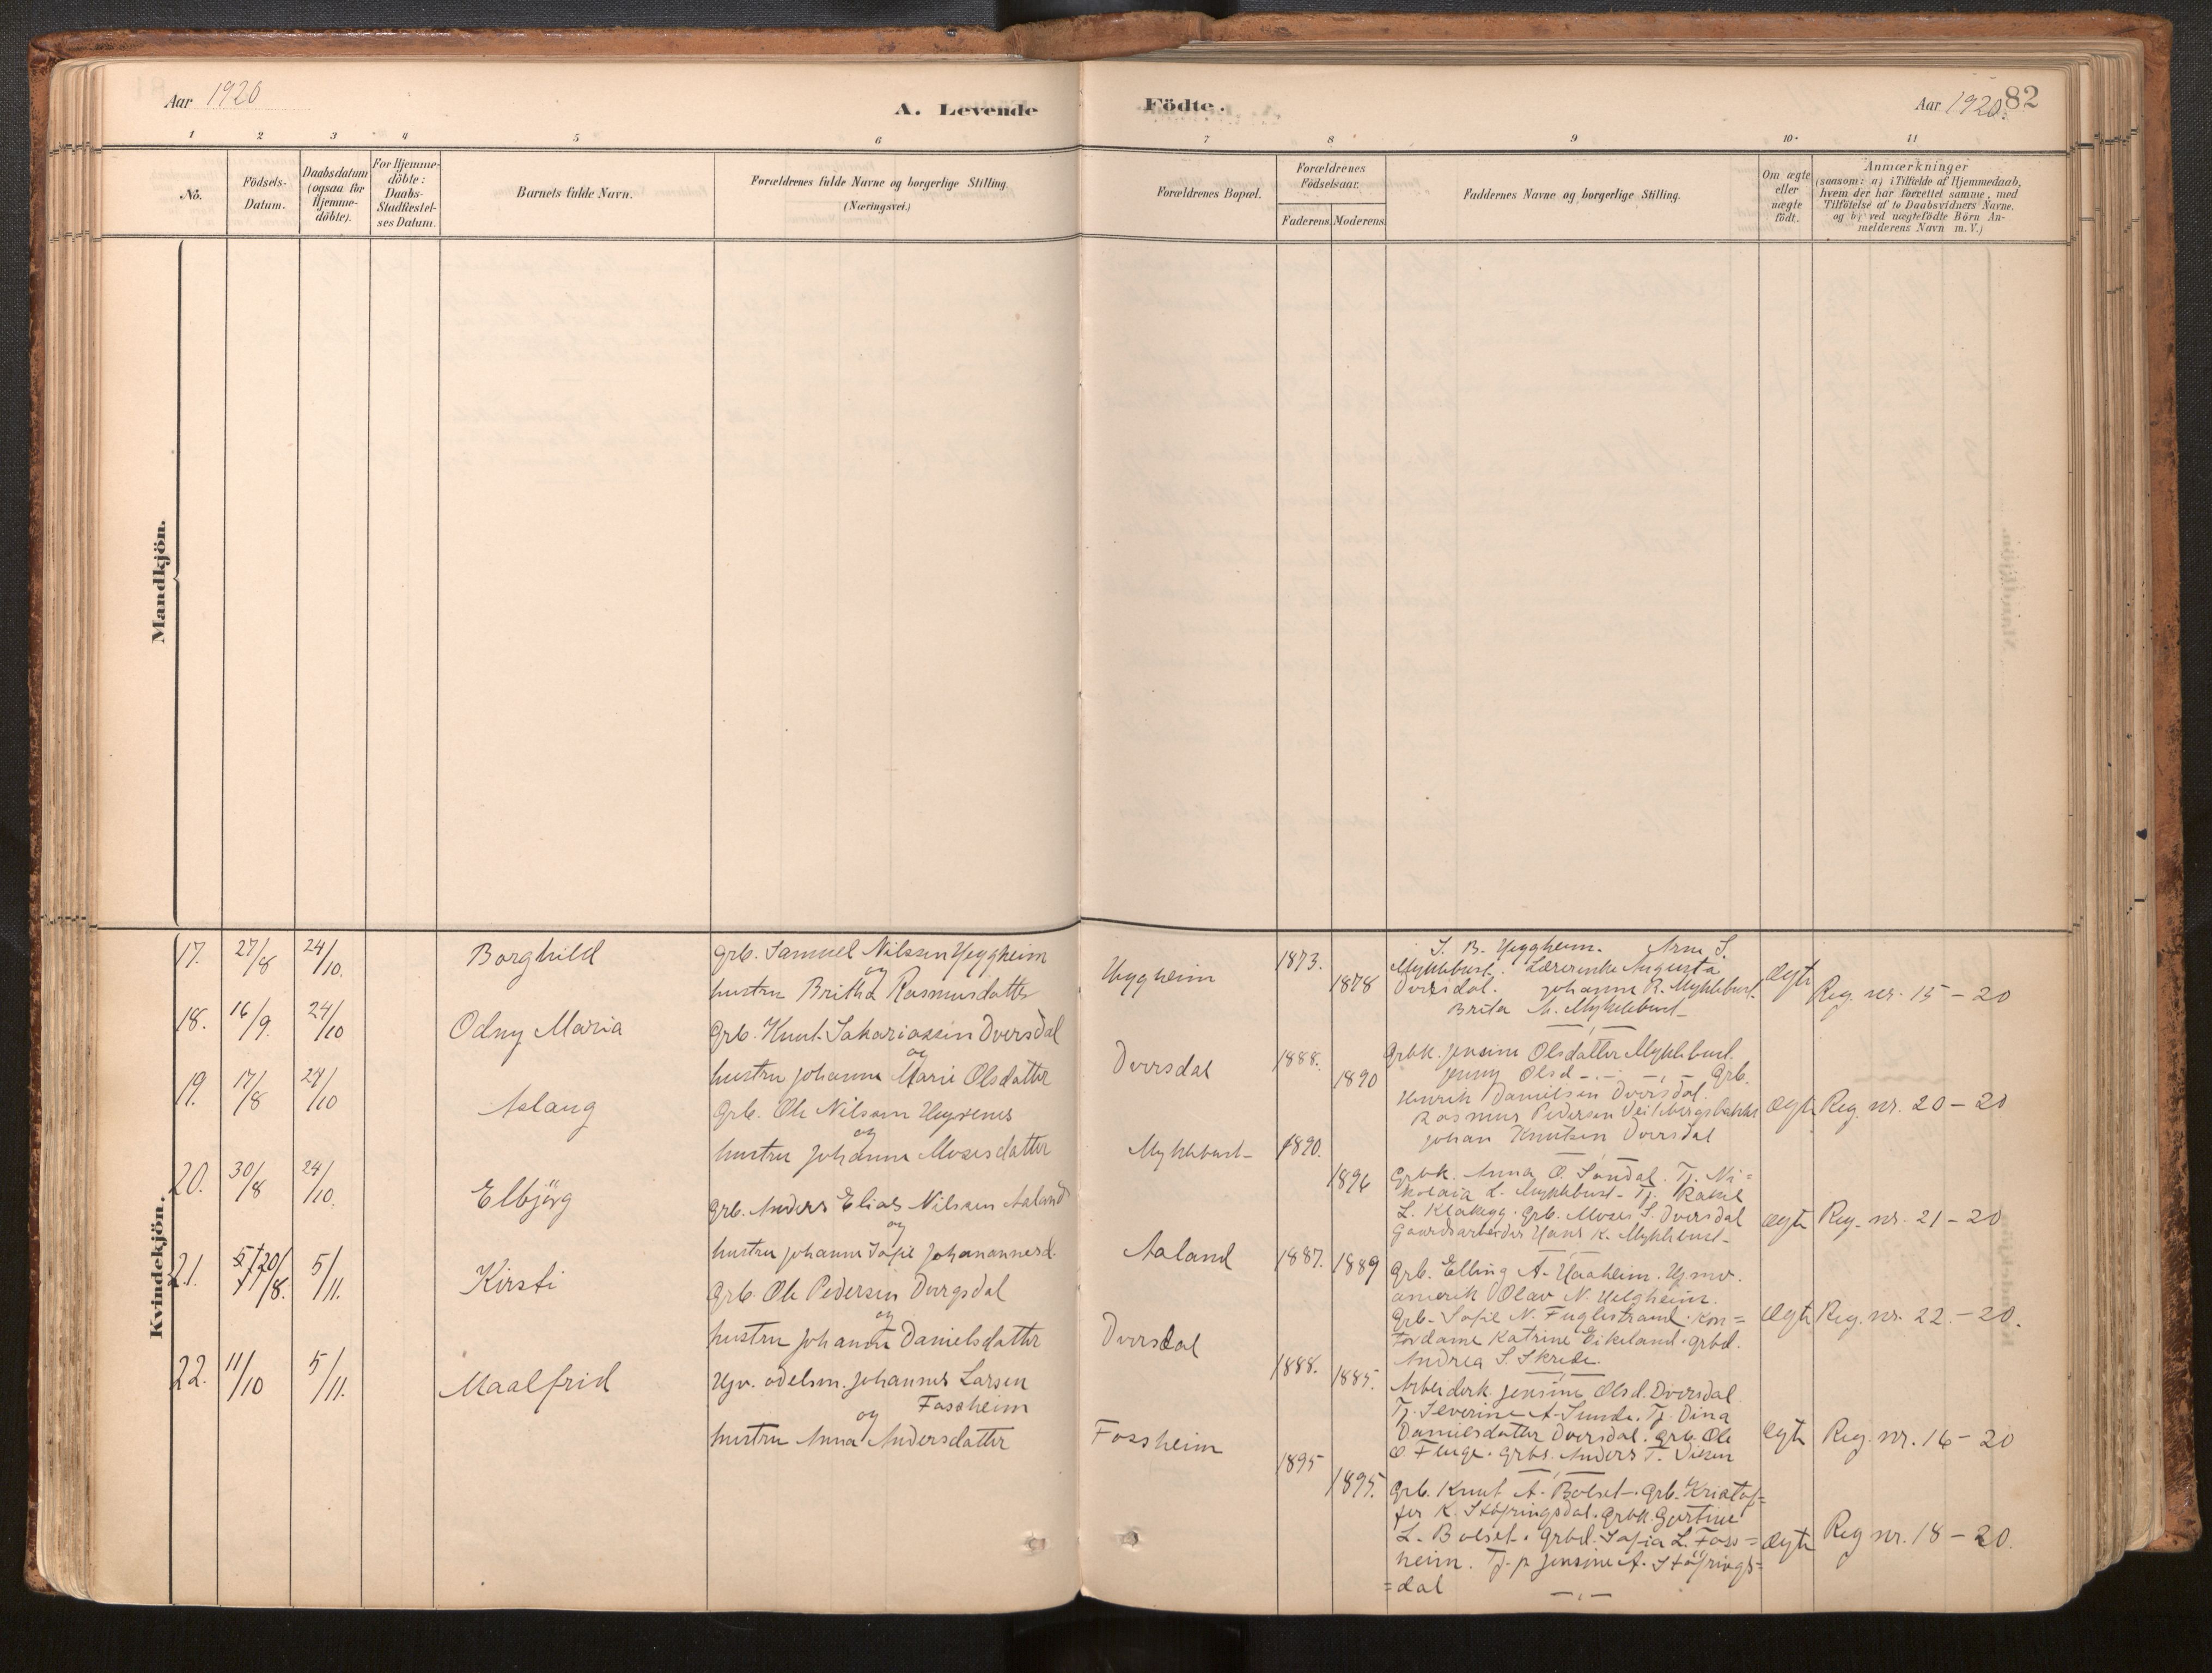 Aar 1920
A. Levende
Födte.
Aar 1920.
82
1 2 3 4 5 6 7 8 9 10. 11
No.
Födsels-
Datum.
Daabsdatum
(ogsaa for
Hjemme-
döbte).
For Hjemme-
döbte:
Daabs-
Stadfæstel-
ses Datum.
Barnets fulde Navn.
Forældrenes fulde Navne og borgerlige Stilling.
(Næringsvei.)
Forældrenes Bopæl.
Forældrenes
Födselsaar.
Faderens. Moderens.
Faddernes Navne og borgerlige Stilling.
Om ægte
eller
uægte
födt.
Anmærkninger
(saasom: a) i Tilfælde af Hjemmedaab,
hvem der har forrettet samme, med
Tilföielse af to Daabsvidners Navne.
og b) ved uægtefödte Börn An-
melderens Navn m. V.)
Mandkjön.
Kvindekjön.
17. 27/8 24/10. Borghild
grb. Samuel Nilssen Myggheim
og
hustru Britha Rasmusdatter
1873.
1878
Mykkebust. Lærerinke Augusta
Dversdal. Johanne R. Myklebust.
Brita M. Myklebust
ægte Reg. nr. 15-20
18. 16/9. 24/10 Odny Maria
Grb. Knut Sakariassen Dversdal
og
hustru Johanne Marie Olsdatter
Dversdal 1888.
1890
Grbk. Jensine Olsdatter Myklebust.
Jenny Olsd -.- -,- Grb.
Henrik Danielsen Dversdal.
Rasmus Pedersen
Johan Knutsen Dversdal
ægte Reg. nr. 20-20
19. 17/8 24/10 Aslaug
Grb. Ole Nilssen
og
hustru Johanne Mosesdatter
Myklebust 1890.
1896
Grbk. Anna O. Søndal. Tj. Ni=
kolaia L. Myklebust- Tj. Rakel
L. Klakegg. Grb. Moses S. Dversdal
Gaardsarbeider Hans K. Myklebust-
ægte Reg. nr. 21-20
20. 30/8 24/10. Elbjörg
grb. Anders Elias Nilssen Aaland
og
hustru Johanne Sofie Johannesd.
Aaland 1887. 1889
Grb. Elling A. Aaheim.
Olav N. Helgheim.
Grb- Sofie N. Fuglestrand. Kon=
tordame Katrine Eikeland. grbd.
Andrea S. Skrede.
ægte Reg. nr. 22-20.
21. 20/8. 5/11. Kirsti
Grb. Ole Pedersen Dvergsdal
og
hustru Johanne Danielsdatter
Dversdal
1888. 1885.
Arbeiderk. Jensine Olsd. Dversdal.
Tj. Severine A. Sunde. Tj. Dina
Danielsdatter Dversdal. Grb. Ole
O. Fluge. Grbs. Anders T.
ægte Reg. nr. 16-20
22. 11/10 5/11. Maalfrid
odelsm. Johannes Larsen
Fossheim
og
hustru Anna Andersdatter
Fossheim
1895
1895.
Grb. Knut A. Bolset. grb. Kristof=
fer K. Støfringsdal. grbk. Gjertine
L. Bolset. Grbd. Sofia L. Foss=
heim. Tj. p. Jensine A. Støfrings=
=dal
-,-
ægte Reg nr. 18-20.